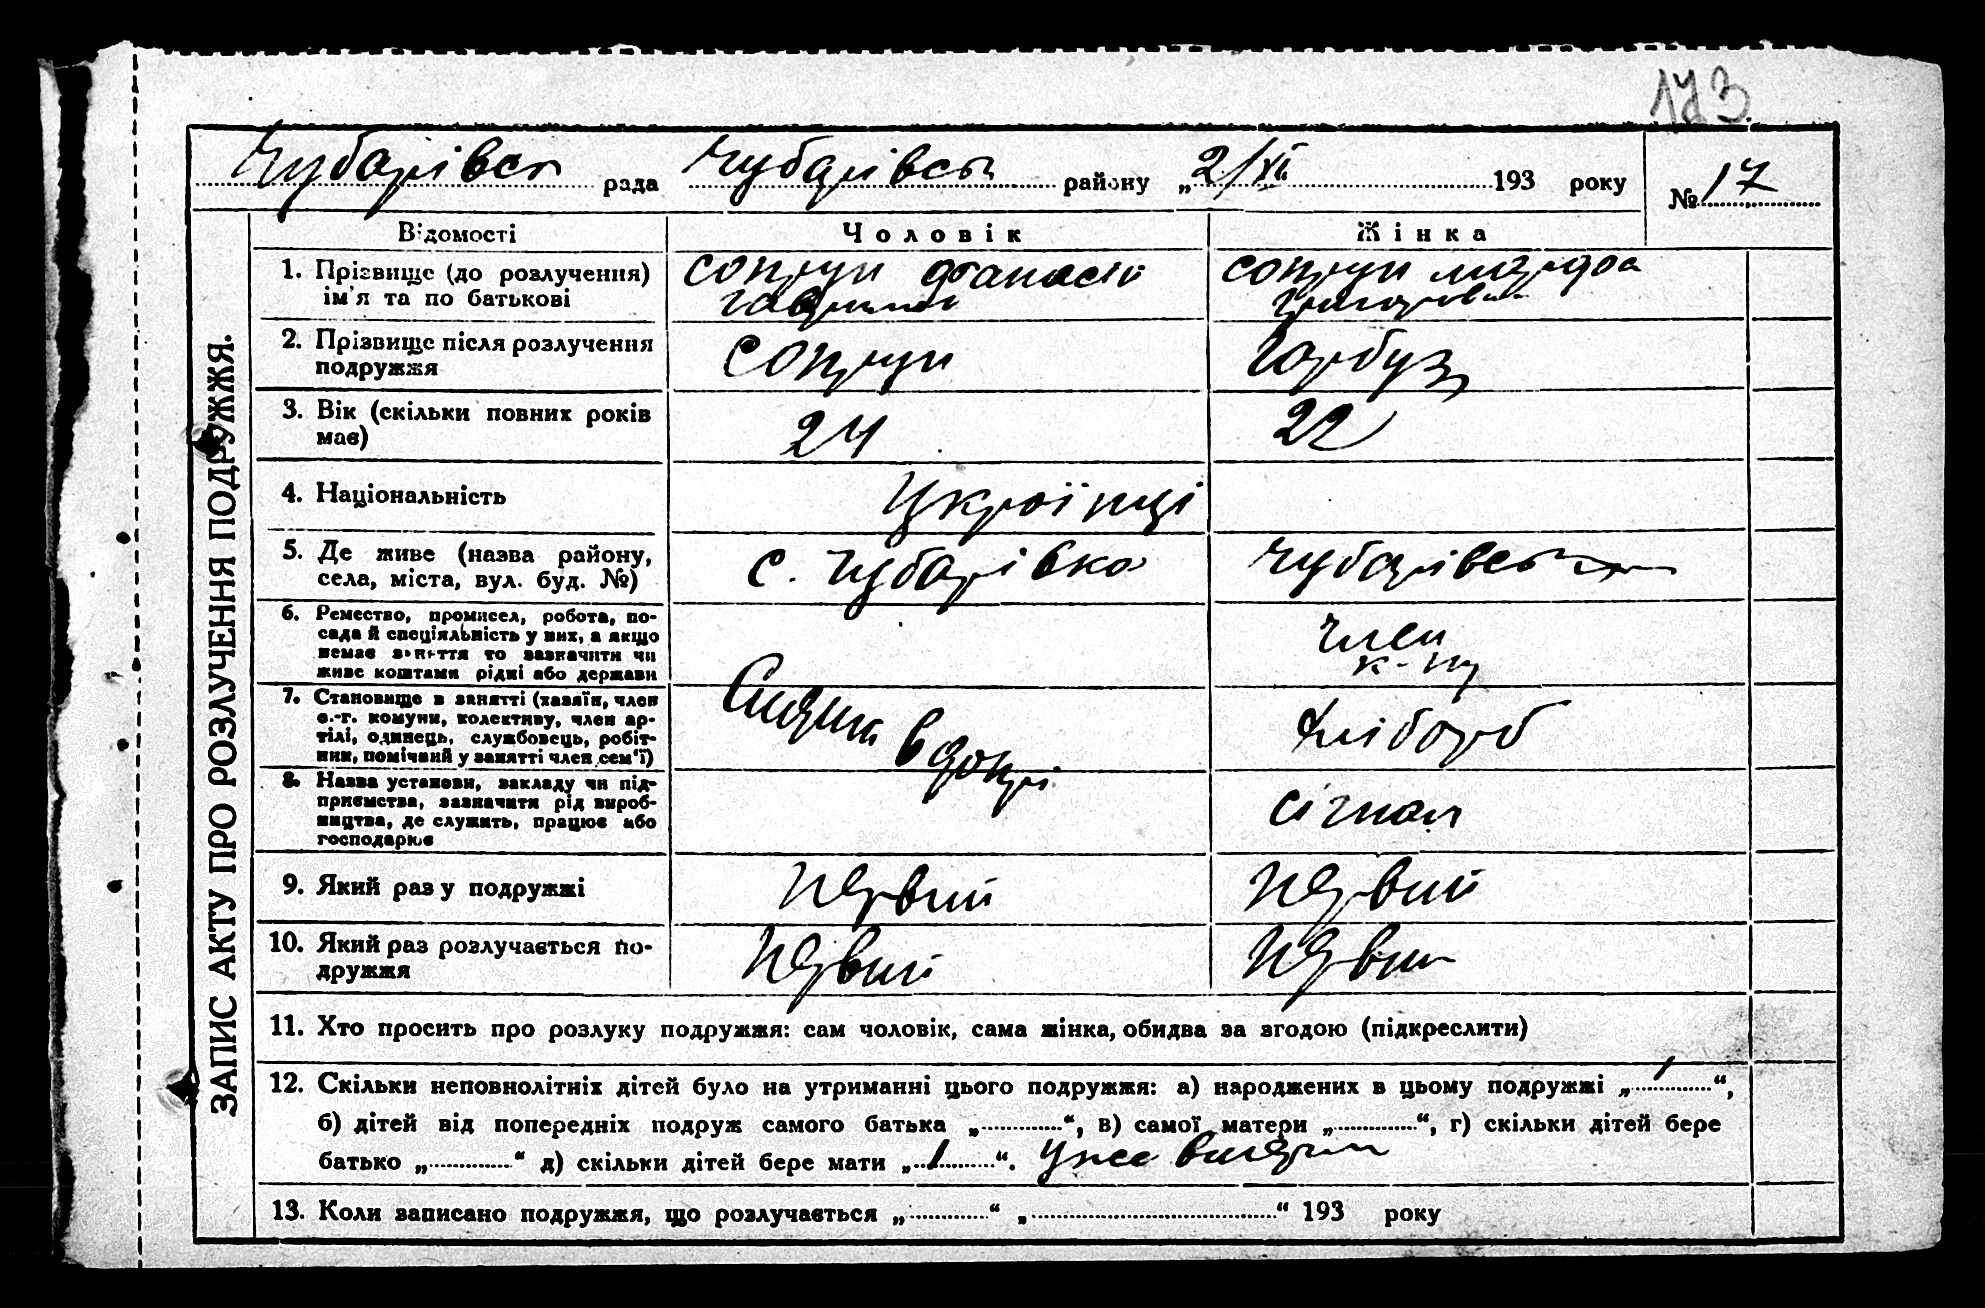 173.
Чубарівсь рада Чубарівськ району „2/XI 193 року №17
ЗАПИС АКТУ ПРО РОЗЛУЧЕННЯ ПОДРУЖЖЯ.
Відомості Чоловік Жінка
1. Прізвище (до розлучення) Сопрун Сопрун
ім'я та по батькові
2. Прізвище після розлучення Сопрун Гарбуз
подружжя
3. Вік (скільки повних років 24 22
має)
4. Національність Українці
5. Де живе (назва району, с. Чубарівка Чубарівськ
села, міста, вул. буд. №)
6. Ремество, промисел, робота, по- член
сада й спеціяльність у них, а якщо к-пу
немає заняття то зазначити чи
живе коштами рідні або держави
7. Становище в занятті (хазяїн, член Сидить в допрі Хлібороб
с.-г. комуни, колективу, член ар-
тілі, одинець, службовець, робіт-
ник, помічний у занятті член сем'ї)
8. Назва установи, закладу чи під- Сігнал
приємства, зазначити рід вироб-
ництва, де служить, працює або
господарює
9. Який раз у подружжі первий первий
10. Який раз розлучається по- первий первий
дружжя
11. Хто просить про розлуку подружжя: сам чоловік, сама жінка, обидва за згодою (підкреслити)
12. Скільки неповнолітніх дітей було на утриманні цього подружжя: а) народжених в цьому подружжі „1“,
б) дітей від попередніх подруж самого батька „ “, в) самої матери „ “, г) скільки дітей бере
батько „ “ д) скільки дітей бере мати „1“.
13. Коли записано подружжя, що розлучається „ “ „ “ 193 року